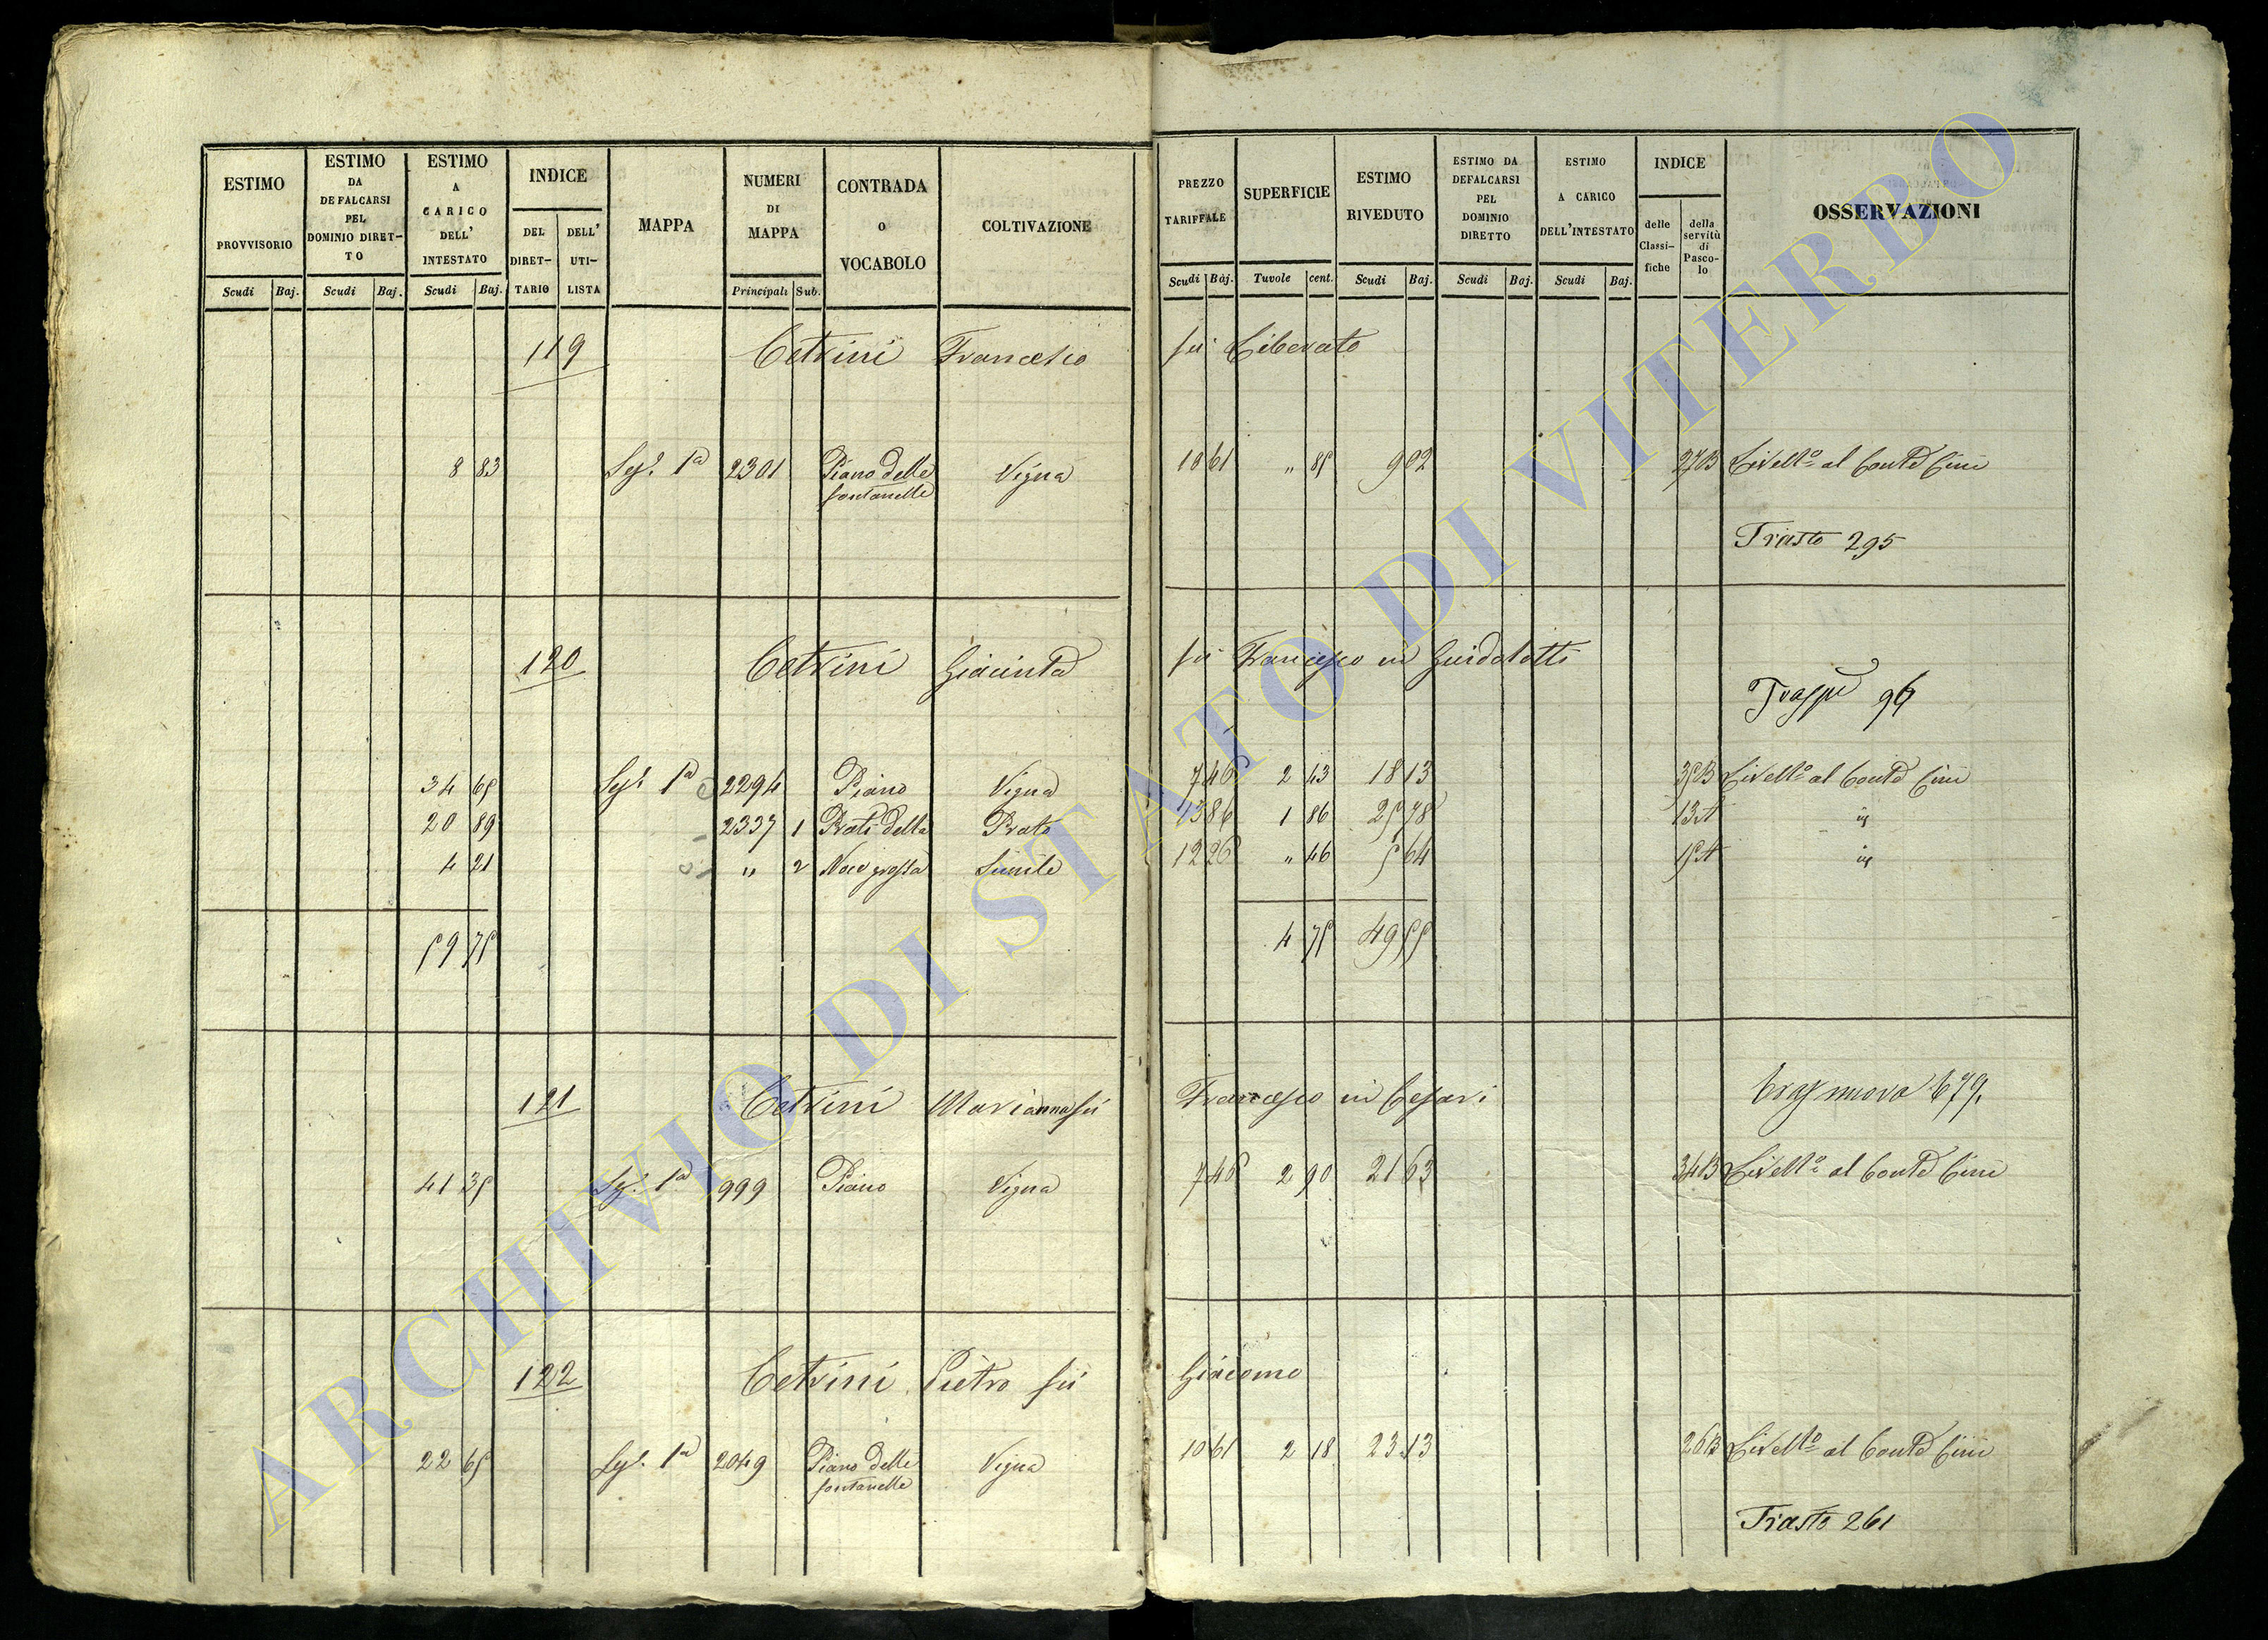 ESTIMO PROVVISORIO
ESTIMO DA DEFALCARSI PEL DOMINIO DIRET-TO
ESTIMO A CARICO DELL' INTESTATO
INDICE
DEL DIRET-TARIO
DELL' UTI-LISTA
MAPPA
NUMERI DI MAPPA
CONTRADA o VOCABOLO
COLTIVAZIONE
PREZZO TARIFFALE
SUPERFICIE
ESTIMO RIVEDUTO
ESTIMO DA DEFALCARSI PEL DOMINIO DIRETTO
ESTIMO A CARICO DELL'INTESTATO
INDICE
delle Classi-fiche
della servitù di Pasco-lo
OSSERVAZIONI
Scudi Baj. Scudi Baj. Scudi Baj. Principali Sub. Scudi Baj. Tavole cent. Scudi Baj. Scudi Baj. Scudi Baj.
119 Cetrini Francesco fu Liberato
8 83 1a 2301 Piano delle fontanelle Vigna 10 61 " 85 9 02 27B Livello al Conte Cini
Trasto 295
120 Cetrini Giacinta fu Francesco in Guidolotti
96
34 65 1a 2294 Piano Vigna 7 46 2 43 18 13 35B Livello al Conte Cini
20 89 2337 1 Prati della Prato 13 86 1 86 25 78 13A id
4 21 " 2 Noce grossa Simile 12 26 " 46 5 64 15A id
59 75 4 75 49 55
121 Cetrini Marianna fu Francesco in Cesari
Tras nuova 679.
41 35 1a 999 Piano Vigna 7 46 2 90 21 63 34B Livello al Conte Cini
122 Cetrini Pietro fu Giacomo
22 65 1a 2049 Piano delle fontanelle Vigna 10 61 2 18 23 13 26B Livello al Conte Cini
Trasto 261
ARCHIVIO DI STATO DI VITERBO